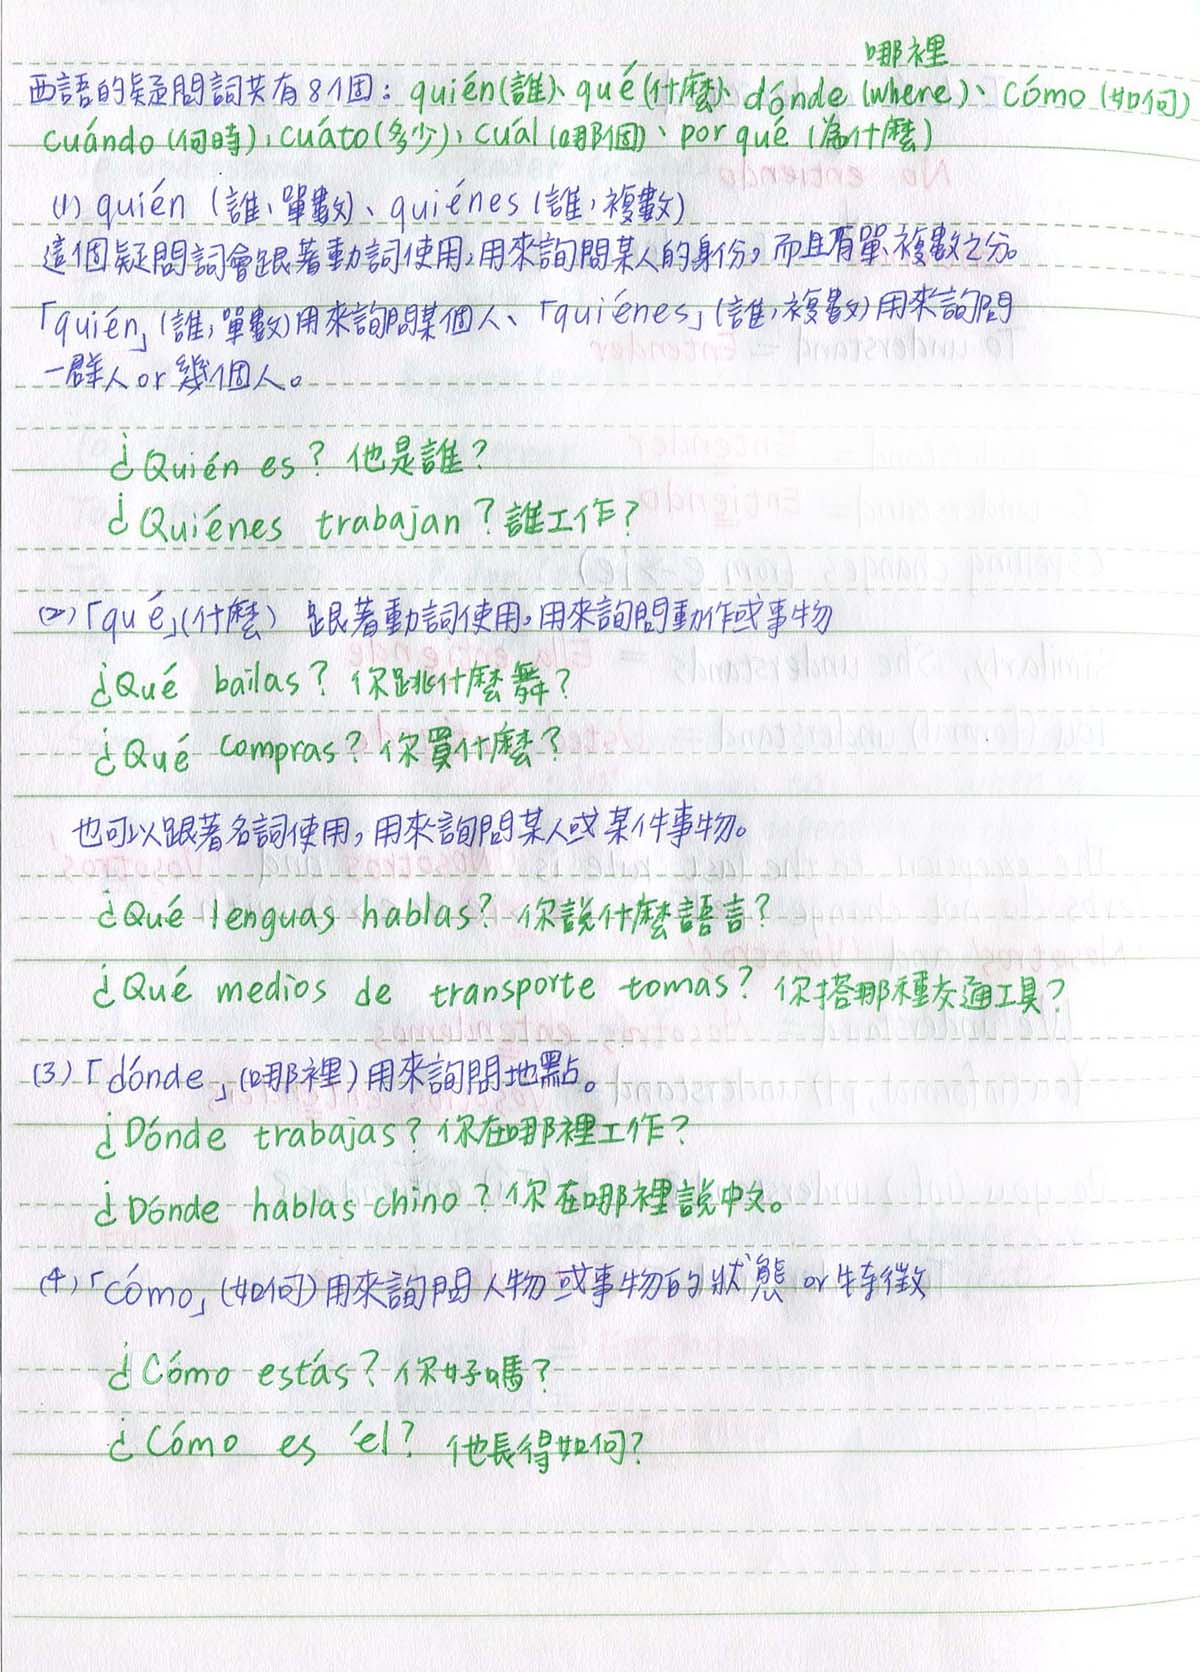 哪裡
西語的疑問詞共有8個：quién(誰)、qué(什麼)、dónde (where)、cómo (如何)
cuándo (何時)，cuáto(多少)，cuál(哪個)、por qué (為什麼)
(1) quién (誰，單數)、quiénes (誰，複數)
這個疑問詞會跟著動詞使用，用來詢問某人的身份，而且有單、複數之分。
「quién」(誰，單數)用來詢問某個人、「quiénes」(誰，複數)用來詢問
一群人 or 幾個人。
¿Quién es? 他是誰?
¿Quiénes trabajan? 誰工作?
(2)「qué」(什麼) 跟著動詞使用，用來詢問動作或事物
¿Qué bailas? 你跳什麼舞?
¿Qué compras? 你買什麼?
也可以跟著名詞使用，用來詢問某人或某件事物。
¿Qué lenguas hablas? 你說什麼語言?
¿Qué medios de transporte tomas? 你搭那種交通工具?
(3)「dónde」(哪裡)用來詢問地點。
¿Dónde trabajas? 你在哪裡工作?
¿Dónde hablas chino? 你在哪裡說中文。
(4)「cómo」(如何)用來詢問人物或事物的狀態 or 特徵
¿Cómo estás? 你好嗎?
¿Cómo es él? 他長得如何?